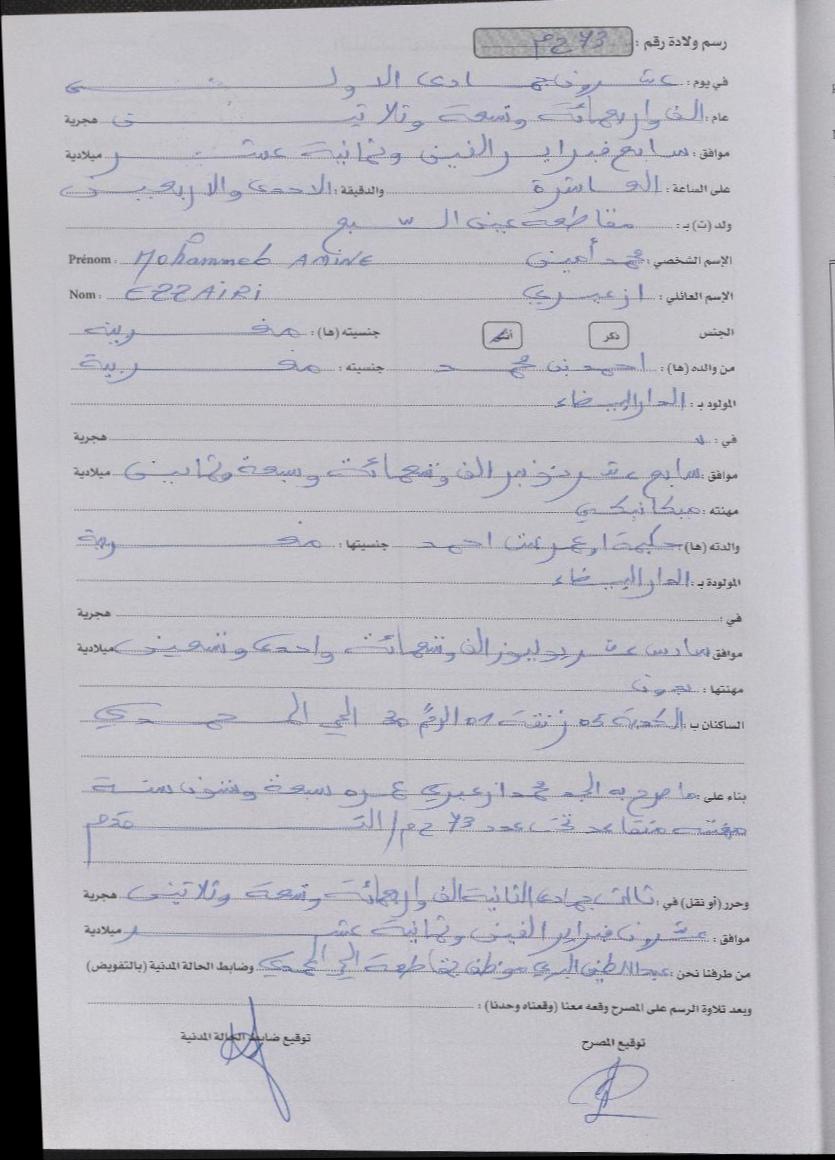 رسم ولادة رقم : 73 ح م
في يوم : عشرون جمادى الاولى
عام : الف واربعمائة وتسعة وثلاثين هجرية
موافق : سابع فبراير الفين وثمانية عشر ميلادية
على الساعة : العاشرة والدقيقة : الاحدى والاربعين
ولد (ت) بـ : مقاطعة عين السبع
الإسم الشخصي : محمد أمين Prénom : Mohammed AMINE
الإسم العائلي : ازعيري Nom : EZZAIRI
الجنس ذكر أنثى جنسيته (ها) : مغربية
من والده (ها) : احمد بن محمد جنسيته : مغربية
المولود بـ : الدار البيضاء
في : هجرية
موافق : سابع عشر نونبر الف وتسعمائة وسبعة وثمانين ميلادية
مهنته : ميكانيكي
والدته (ها) : حكيمة بنت احمد جنسيتها : مغربية
المولودة بـ : الدار البيضاء
في : هجرية
موافق سادس عشر يوليوز الف وتسعمائة واحدى وتسعين ميلادية
مهنتها : بدون
الساكنان ب : الكدية 05 زنقة 01 الرقم 30 الحي المحمدي
بناء على : ما صرح به الجد محمد ازعيري عمره سبعة وستون سنة
مهنته متقاعد تحت عدد 73 ح م /
وحرر (أو نقل) في : ثالث جمادى الثانية الف واربعمائة وتسعة وثلاثين هجرية
موافق : عشرون فبراير الفين وثمانية عشر ميلادية
من طرفنا نحن : عبد اللطيف موظف بمقاطعة الحي المحمدي وضابط الحالة المدنية (بالتفويض)
وبعد تلاوة الرسم على المصرح وقعه معنا (وقعناه وحدنا) :
توقيع المصرح توقيع ضابط الحالة المدنية